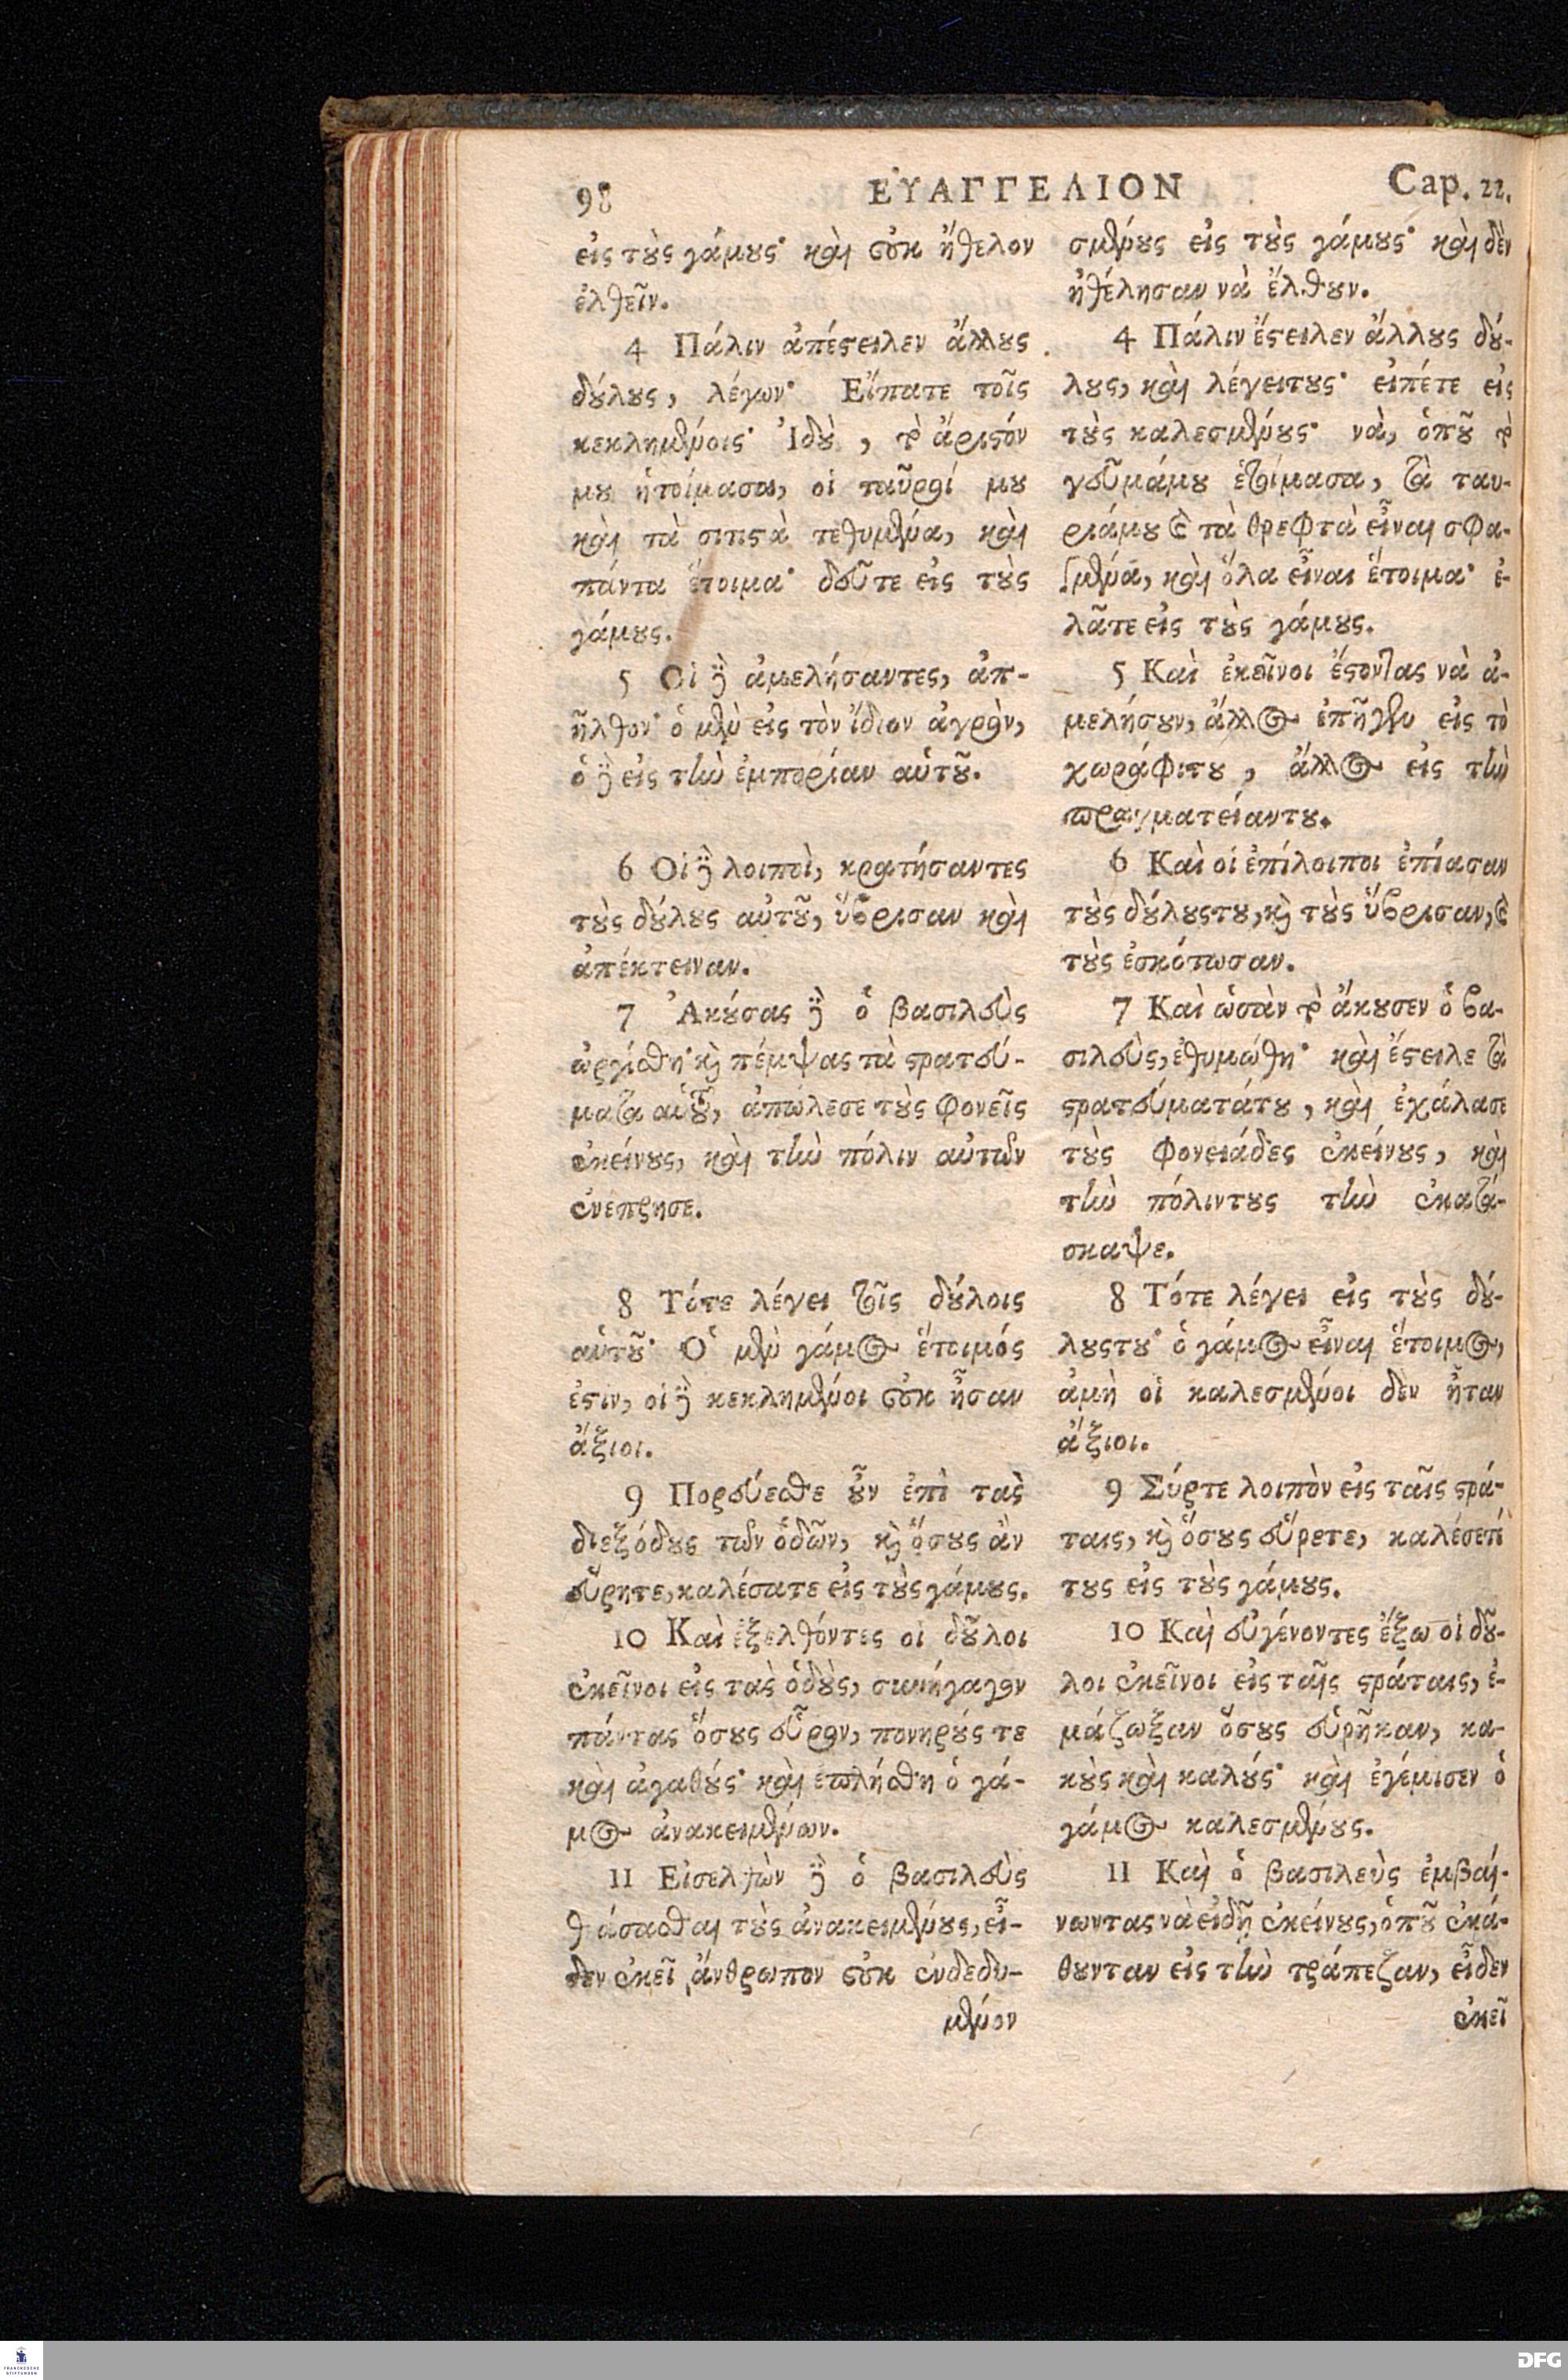 98
ΕΥ̓ΑΓΓΕΛΙΟΝ
Cap. 22.
εἰς τοὺς γάμους· καὶ οὐκ ἤθελον
ἐλθεῖν.
4 Πάλιν ἀπέστειλεν ἄλλους
δούλους, λέγων· Εἴπατε τοῖς
κεκλημένοις· Ἰδοὺ, τὸ ἄριστόν
μου ἡτοίμασα, οἱ ταῦροί μου
καὶ τὰ σιτιστὰ τεθυμένα, καὶ
πάντα ἕτοιμα· δεῦτε εἰς τοὺς
γάμους.
5 Οἱ δὲ ἀμελήσαντες, ἀπ-
ῆλθον· ὁ μὲν εἰς τὸν ἴδιον ἀγρὸν,
ὁ δὲ εἰς τὴν ἐμπορίαν αὑτοῦ.
6 Οἱ δὲ λοιποὶ, κρατήσαντες
τοὺς δούλους αὐτοῦ, ὕβρισαν καὶ
ἀπέκτειναν.
7 Ἀκούσας δὲ ὁ βασιλεὺς
ὠργίσθη· καὶ πέμψας τὰ στρατεύ-
ματα αὑτοῦ, ἀπώλεσε τοὺς φονεῖς
ἐκείνους, καὶ τὴν πόλιν αὐτῶν
ἐνέπρησε.
8 Τότε λέγει τοῖς δούλοις
αὑτοῦ· Ὁ μὲν γάμος ἕτοιμός
ἐστιν, οἱ δὲ κεκλημένοι οὐκ ἦσαν
ἄξιοι.
9 Πορεύεσθε οὖν ἐπὶ τὰς
διεξόδους τῶν ὁδῶν, καὶ ὅσους ἂν
εὕρητε, καλέσατε εἰς τοὺς γάμους.
10 Καὶ ἐξελθόντες οἱ δοῦλοι
ἐκεῖνοι εἰς τὰς ὁδοὺς, συνήγαγον
πάντας ὅσους εὗρον, πονηρούς τε
καὶ ἀγαθούς· καὶ ἐπλήσθη ὁ γά-
μος ἀνακειμένων.
11 Εἰσελθὼν δὲ ὁ βασιλεὺς
θεάσασθαι τοὺς ἀνακειμένους, εἶ-
δεν ἐκεῖ ἄνθρωπον οὐκ ἐνδεδυ-
μένον
σμένους εἰς τοὺς γάμους· καὶ δὲν
ἠθέλησαν νὰ ἔλθουν.
4 Πάλιν ἔστειλεν ἄλλους δού-
λους, καὶ λέγειτους· εἰπέτε εἰς
τοὺς καλεσμένους· νὰ, ὁποῦ τὸ
γεῦμάμου ἑτοίμασα, τὰ ταυ-
ριάμου καὶ τὰ θρεφτὰ εἶναι σφα-
σμένα, καὶ ὅλα εἶναι ἕτοιμα· ἐ-
λᾶτε εἰς τοὺς γάμους.
5 Καὶ ἐκεῖνοι ἔστοντας νὰ ἀ-
μελήσουν, ἄλλος ἐπῆγεν εἰς τὸ
χωράφιτου, ἄλλος εἰς τὴν
πραγματείαντου.
6 Καὶ οἱ ἐπίλοιποι ἐπίασαν
τοὺς δούλουςτου, καὶ τοὺς ὕβρισαν, καὶ
τοὺς ἐσκότωσαν.
7 Καὶ ὡσὰν τὸ ἄκουσεν ὁ βα-
σιλεὺς, ἐθυμώθη· καὶ ἔστειλε τὰ
στρατεύματάτου, καὶ ἐχάλασε
τοὺς φονειάδες ἐκείνους, καὶ
τὴν πόλιντους τὴν ἐκατά-
σκαψε.
8 Τότε λέγει εἰς τοὺς δού-
λουςτου· ὁ γάμος εἶναι ἕτοιμος,
ἀμὴ οἱ καλεσμένοι δὲν ἦταν
ἄξιοι.
9 Σύρτε λοιπὸν εἰς ταῖς στρά-
ταις, καὶ ὅσους εὕρετε, καλέσετέ
τους εἰς τοὺς γάμους.
10 Καὶ εὐγένοντες ἔξω οἱ δοῦ-
λοι ἐκεῖνοι εἰς ταῖς στράταις, ἐ-
μάζωξαν ὅσους εὑρῆκαν, κα-
κοὺς καὶ καλούς· καὶ ἐγέμισεν ὁ
γάμος καλεσμένους.
11 Καὶ ὁ βασιλεὺς ἐμβαί-
νωντας νὰ εἰδῇ ἐκείνους, ὁποῦ ἐκά-
θουνταν εἰς τὴν τράπεζαν, εἶδεν
ἐκεῖ
FRANCKESCHE
STIFTUNGEN
DFG